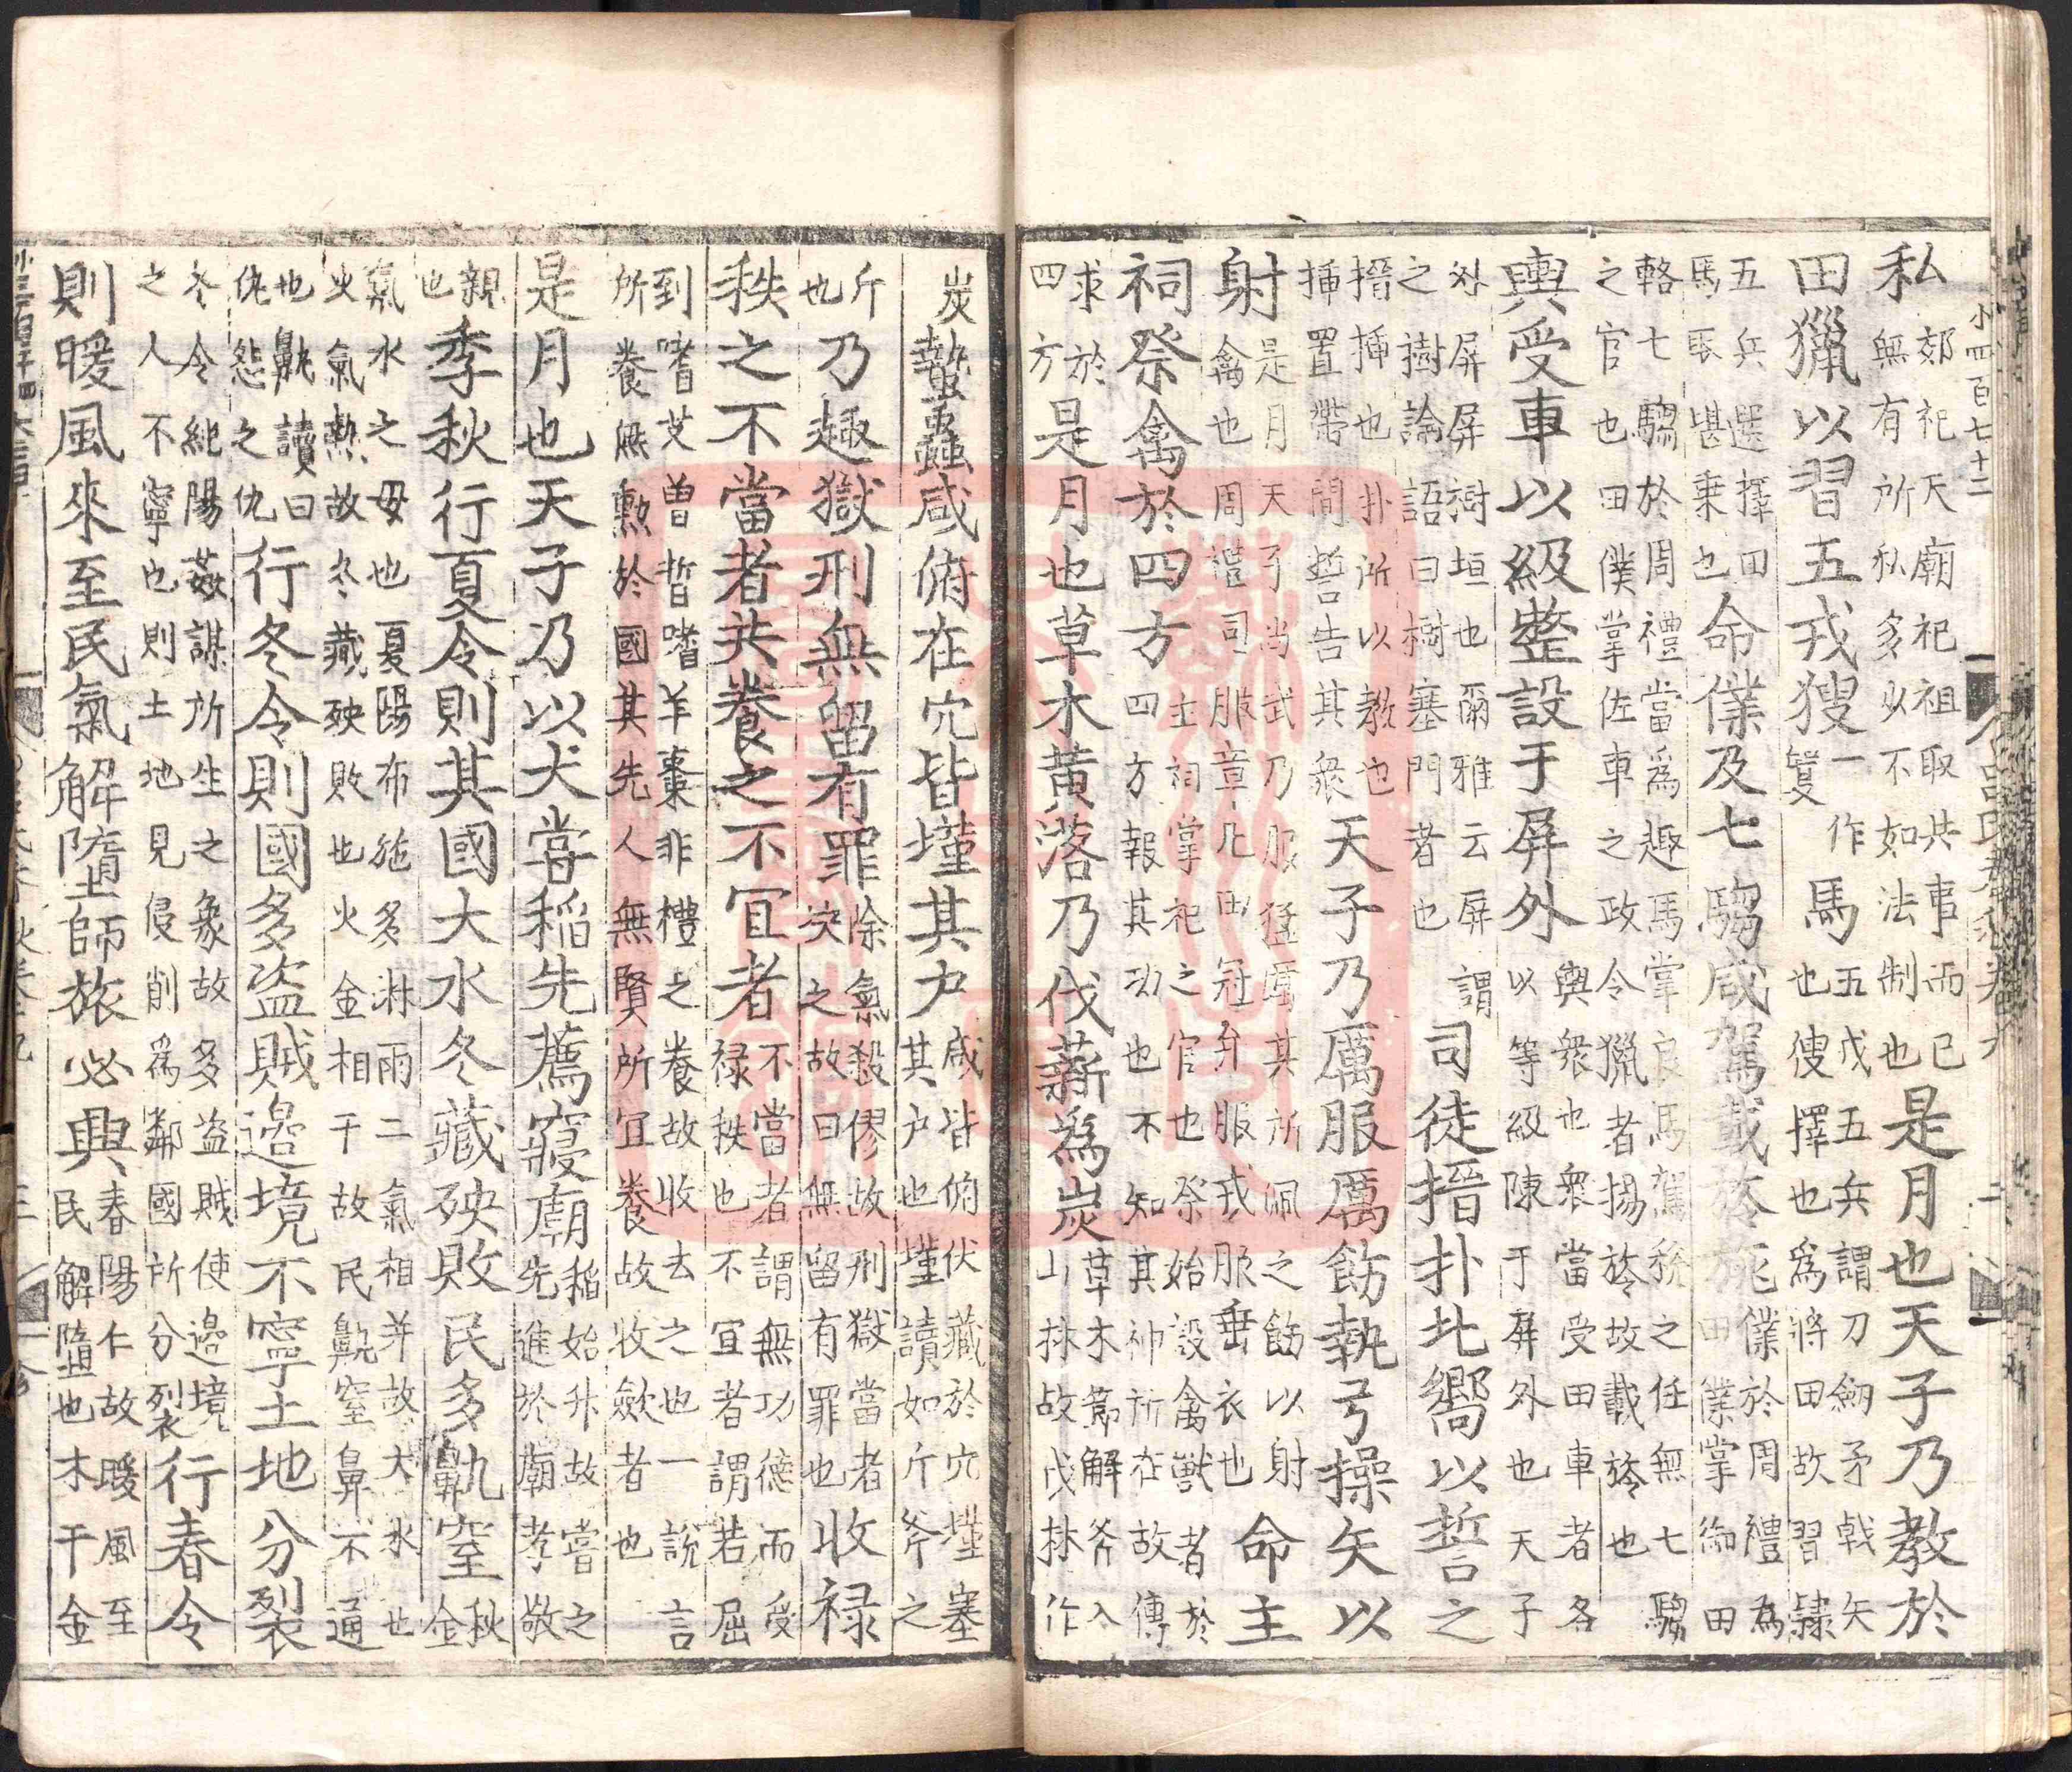 小四百七十二
私郊祀天廟祀祖取共事而已無有所私多少不如法制也是月也天子乃教於
田獵以習五戎獀一作獀馬五戎五兵謂刀劒矛戟矢也獀擇也爲將田故習肄
五兵選擇田馬取堪乗也命僕及七騶咸駕載旍旐僕於周禮為田僕掌御田
輅七騶於周禮當爲趣馬掌良馬駕稅之任無七騶之官也田僕掌佐車之政令獵者揚旍故載旍也
輿受車以級整設于屏外輿衆也衆當受田車者各以等級陳于屏外也天子
外屏屏樹垣也爾雅云屏謂之樹論語曰樹塞門者也司徒搢扑北嚮以誓之
搢插也扑所以教也插置帶間誓告其衆天子乃厲服厲飭執弓操矢以
射是月天子尚武乃服猛厲其所佩之飭以射禽也周禮司服章凡田冠弁服戎服垂衣也命主
祠祭禽於四方主祠掌祀之官也祭始設禽獸者於四方報其功也不知其神所在故傳
求於四方是月也草木黃落乃伐薪爲炭草木節解斧入山林故伐林作
炭蟄蟲咸俯在穴皆墐其户咸皆俯伏藏於穴墐塞其户也墐讀如斤斧之
斤也乃趣獄刑無留有罪除氣殺僇故刑獄當者決之故曰無留有罪也收禄
秩之不當者共養之不宜者不當者謂無功德而受禄秩也不宜者謂若屈
到嗜芰曽晳嗜羊棗非禮之養故收去之也一說言所養無勲於國其先人無賢所宜養故收歛者也
是月也天子乃以犬嘗稻先薦寢廟稻始升故嘗之先進於廟孝敬
親也季秋行夏令則其國大水冬藏殃敗民多鼽窒秋金
氣水之母也夏陽布施多淋雨二氣相并故大水也火氣熱故冬藏殃敗也火金相干故民鼽窒鼻不通
也鼽讀曰仇怨之仇行冬令則國多盜賊邊境不寧土地分裂
冬令純陽姦謀所生之象故多盜賊使邊境之人不寧也則土地見侵削爲鄰國所分裂行春令
則暖風來至民氣解墮師旅必興春陽仁故暖風至民解墮也木干金